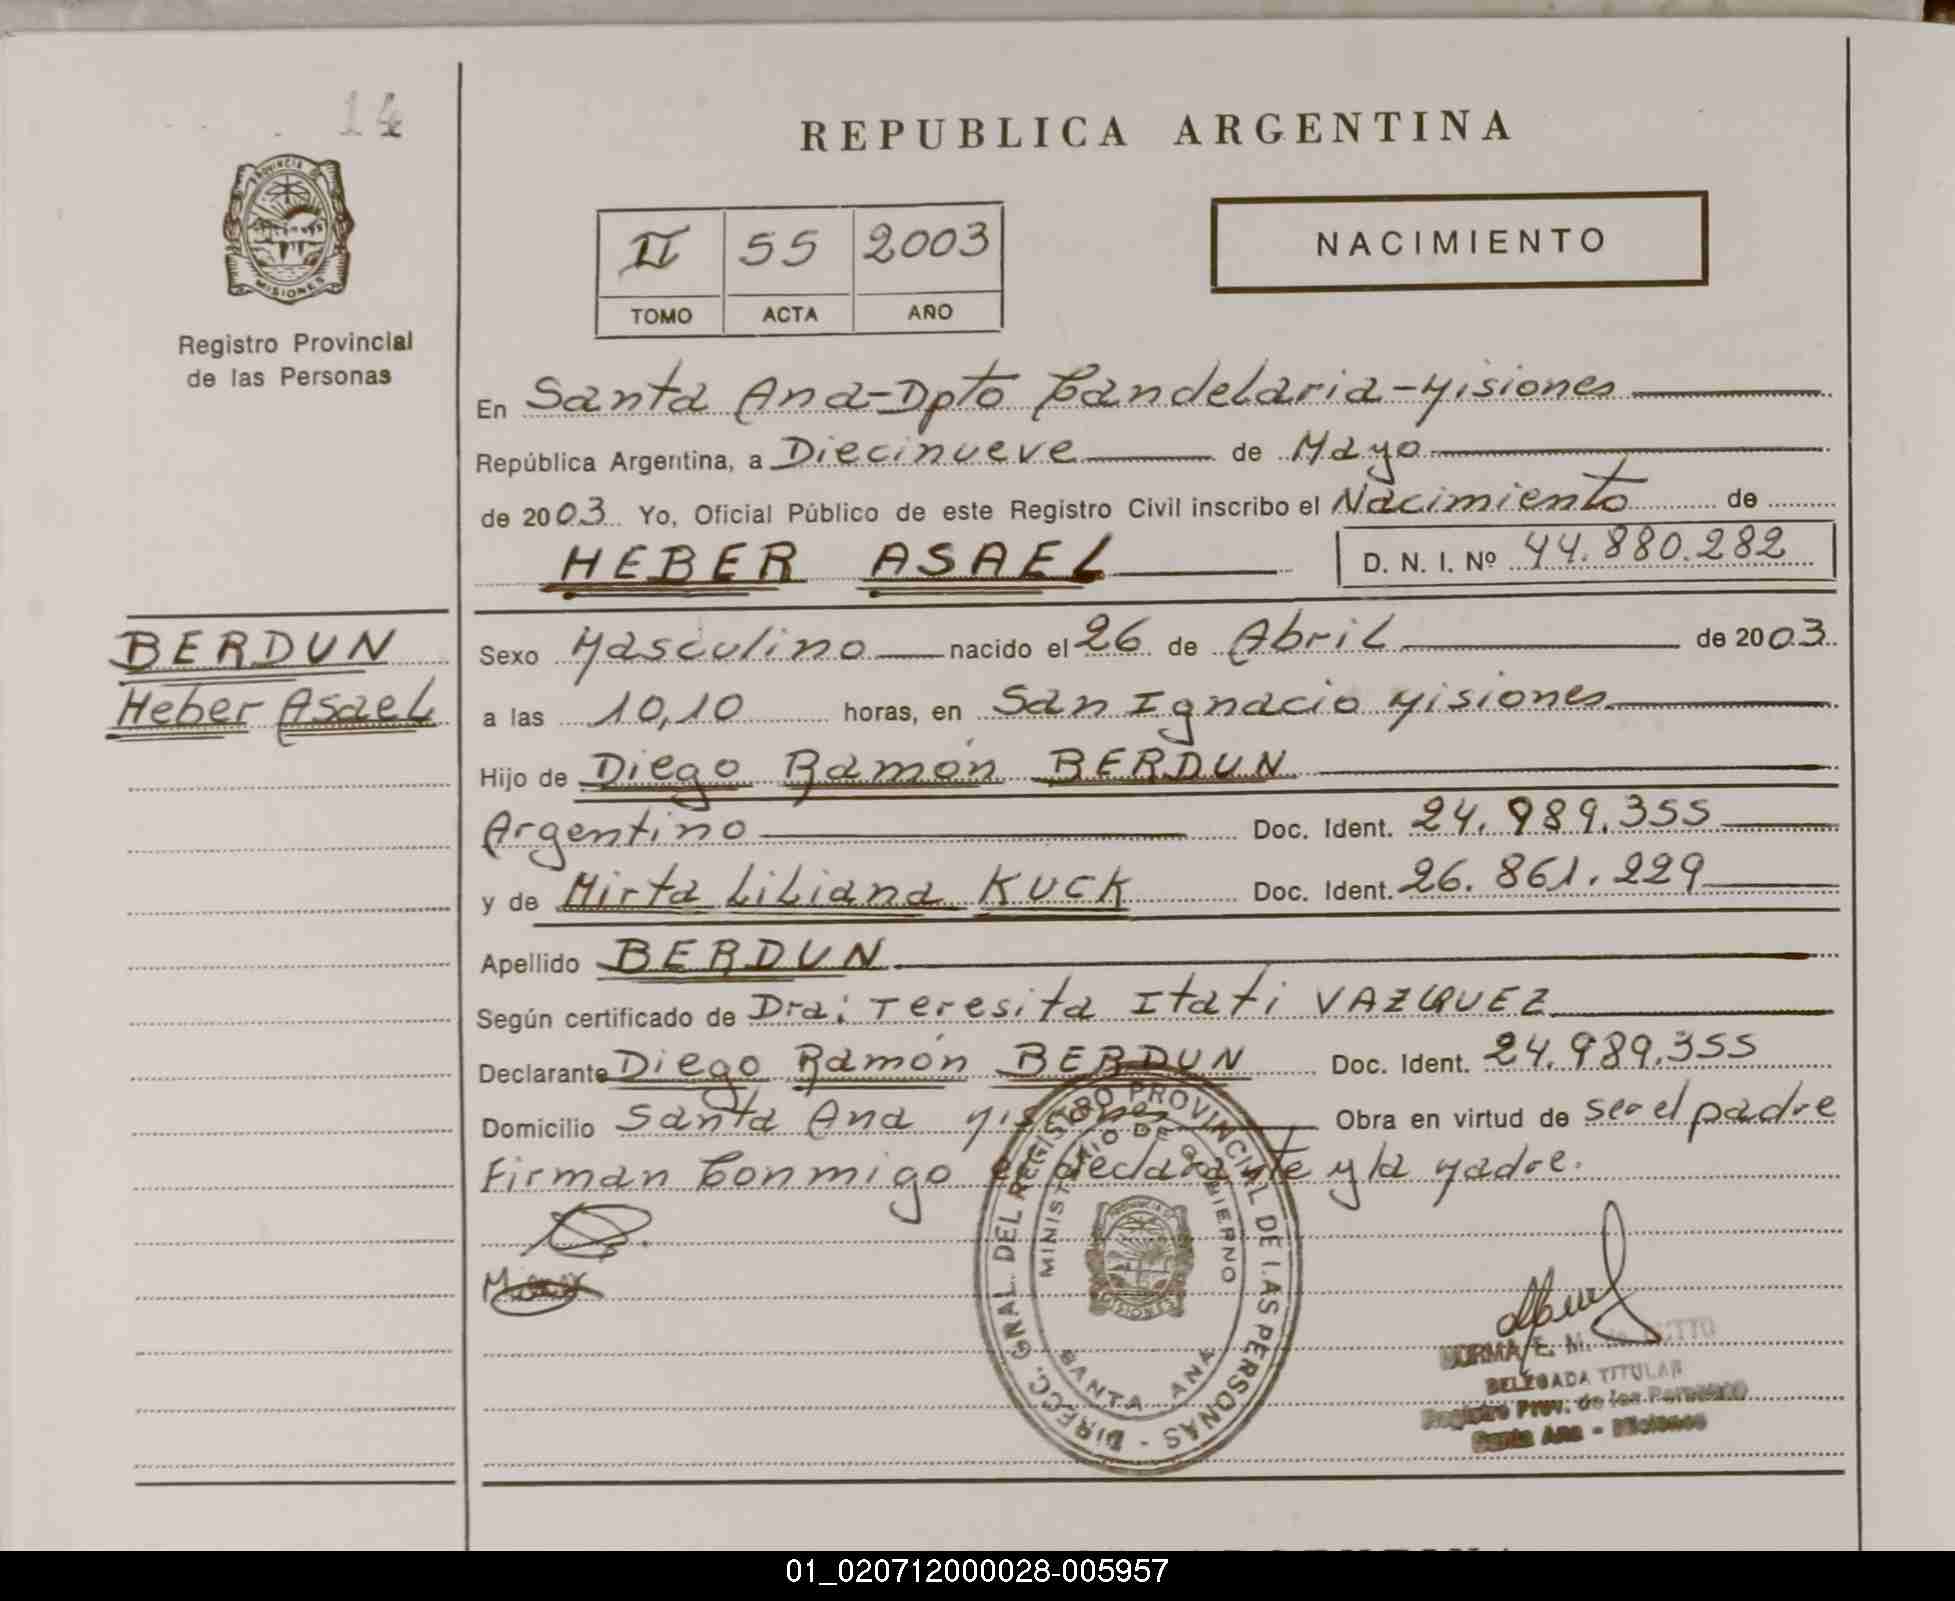 14
PROVINCIA DE
MISIONES
Registro Provincial
de las Personas
REPUBLICA ARGENTINA
II 55 2003
TOMO ACTA AÑO
NACIMIENTO
En Santa Ana-Dpto Candelaria-Misiones
República Argentina, a Diecinueve de Mayo
de 2003 Yo, Oficial Público de este Registro Civil inscribo el Nacimiento de
HEBER ASAEL D. N. I. Nº 44.880.282
BERDUN
Heber Asael
Sexo Masculino nacido el 26 de Abril de 2003
a las 10,10 horas, en San Ignacio Misiones
Hijo de Diego Ramón BERDUN
Argentino Doc. Ident. 24.989.355
y de Mirta Liliana KUCK Doc. Ident. 26.861.229
Apellido BERDUN
Según certificado de Dra: Teresita Itati VAZQUEZ
Declarante Diego Ramón BERDUN Doc. Ident. 24.989.355
Domicilio Santa Ana Misiones Obra en virtud de ser el padre
Firman Conmigo el declarante y la Madre.
DIRECC. GRAL. DEL REGISTRO PROVINCIAL DE LAS PERSONAS -
MINISTERIO DE GOBIERNO
SANTA ANA
MISIONES
NORMA E. M. de
DELEGADA TITULAR
Registro Prov. de las Personas
Santa Ana - Misiones
01_020712000028-005957